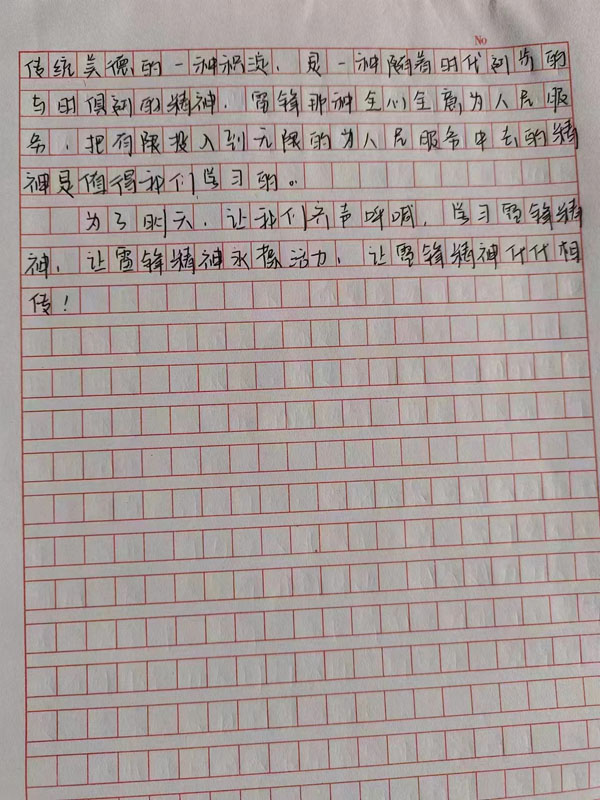 No
传统美德的一种积淀，是一种随着时代列车的
与时俱进的精神，雷锋那种全心全意为人民服
务，把有限投入到无限的为人民服务中去的精
神是值得我们学习的。
为了明天，让我们齐声呼喊，学习雷锋精
神，让雷锋精神永葆活力，让雷锋精神代代相
传！